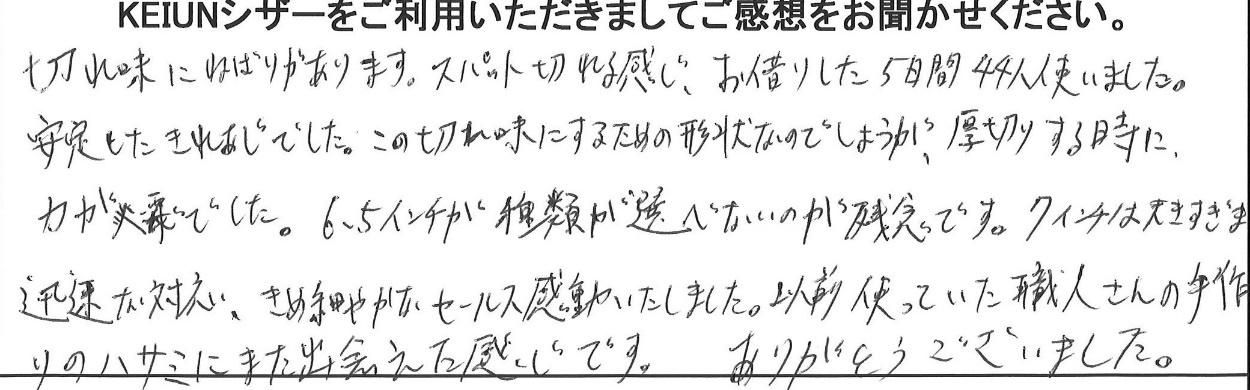 KEIUNシザーをご利用いただきましてご感想をお聞かせください。
切れ味にねばりがあります。スパット切れる感じ、お借りした5日間44人使いました。
安定したきれあじでした。この切れ味にするための形状なのでしょうが、厚切りする時に、
力が必要でした。6.5インチが種類が選べないのが残念です。7インチは大きすぎま
迅速な対応、きめ細やかなセールス感動いたしました。以前使っていた職人さんの手作
りのハサミにまた出会えた感じです。 ありがとうございました。